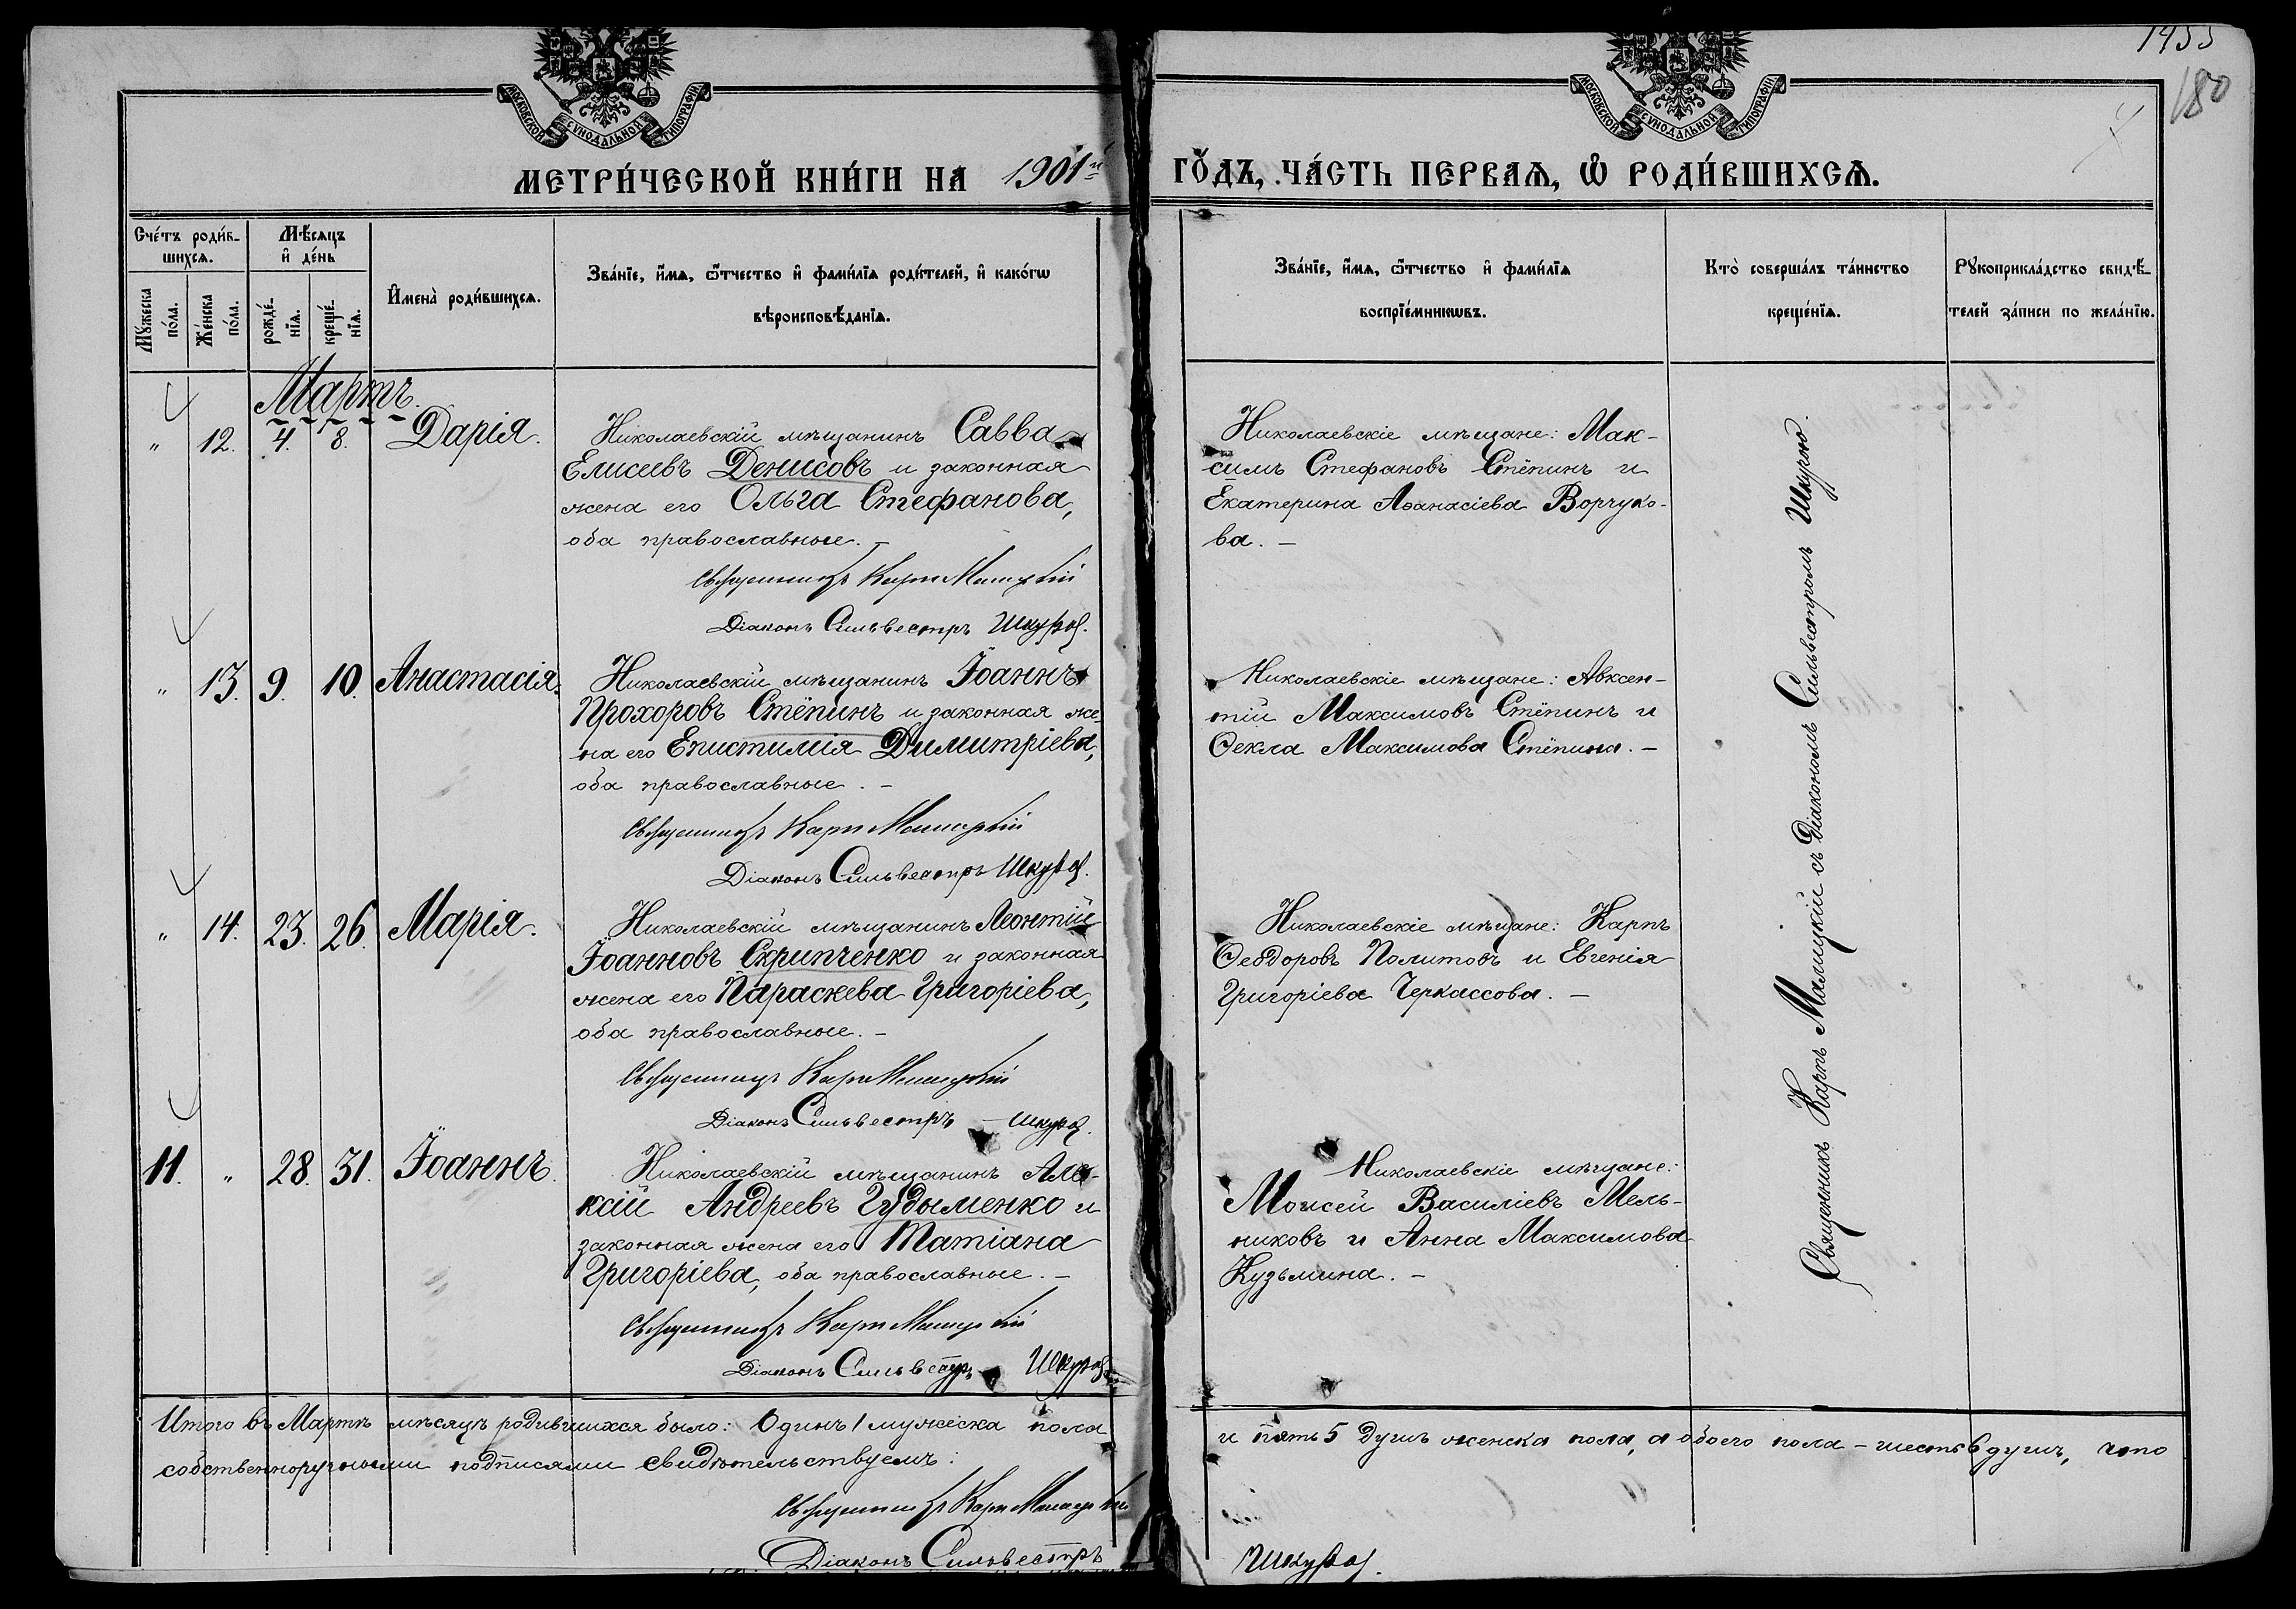 1455
180
МОСКОВСКОЙ СѴНОДАЛЬНОЙ ТИПОГРАФІИ
МОСКОВСКОЙ СѴНОДАЛЬНОЙ ТИПОГРАФІИ
МЕТРИ́ЧЕСКОЙ КНИ́ГИ НА 1901й ГО́ДЪ, ЧА́СТЬ ПЕРВАѦ, Ѡ РОДИ́ВШИХСѦ.
Сче́тъ роди́в-
шихсѧ.
Мѣ́сѧцъ
и҆ де́нь
Мꙋжеска по́ла.
Же́нска по́ла.
рожде́-
нїѧ.
креще́-
нїѧ.
И҆мена̀ роди́вшихсѧ.
Зва́нїе, и҆́мѧ, ѻ҆́тчество и҆ фами́лїѧ роди́телей, и҆ како́гѡ
вѣроисповѣ́данїѧ.
Зва́нїе, и҆́мѧ, ѻ҆́тчество и҆ фами́лїѧ
воспрїе́мникѡвъ.
Кто̀ соверша́лъ та́инство
креще́нїѧ.
Рꙋкоприкла́дство свидѣ́-
телей за́писи по жела́нїю.
Мартъ.
" 12. 4. 8. Дарія.
Николаевскій мѣщанинъ Савва
Елисеевъ Денисовъ и законная
жена его Ольга Стефанова,
оба православные. –
Священникъ Карпъ Малицкій
Діаконъ Сильвестръ Шкура.
Николаевскіе мѣщане: Мак-
симъ Стефановъ Стёпинъ и
Екатерина Аѳанасіева Ворчуко-
ва. –
" 13. 9. 10. Анастасія.
Николаевскій мѣщанинъ Іоаннъ
Прохоровъ Стёпинъ и законная же-
на его Епистимія Димитріева,
оба православные. –
Священникъ Карпъ Малицкій
Діаконъ Сильвестръ Шкура.
Николаевскіе мѣщане: Авксен-
тій Максимовъ Стёпинъ и
Ѳекла Максимова Стёпина. –
" 14. 23. 26. Марія.
Николаевскій мѣщанинъ Леонтій
Іоанновъ Скрипченко и законная
жена его Параскева Григоріева,
оба православные. –
Священникъ Карпъ Малицкій
Діаконъ Сильвестръ Шкура.
Николаевскіе мѣщане: Карпъ
Ѳеодоровъ Политовъ и Евгенія
Григоріева Черкассова. –
11. " 28. 31. Іоаннъ.
Николаевскій мѣщанинъ Але-
ксій Андреевъ Гудыменко и
законная жена его Татіана
Григоріева, оба православные. –
Священникъ Карпъ Малицкій
Діаконъ Сильвестръ Шкура.
Николаевскіе мѣщане:
Моисей Василіевъ Мель-
никовъ и Анна Максимова
Кузьмина. –
Священникъ Карпъ Малицкій съ Діакономъ Сильвестромъ Шкурою.
Итого въ Мартѣ мѣсяцѣ родившихся было: Одинъ 1 мужеска пола и пять 5 душъ женска пола, а обоего пола – шесть 6 душъ, что
собственноручными подписями свидѣтельствуемъ:
Священникъ Карпъ Малицкій
Діаконъ Сильвестръ Шкура.